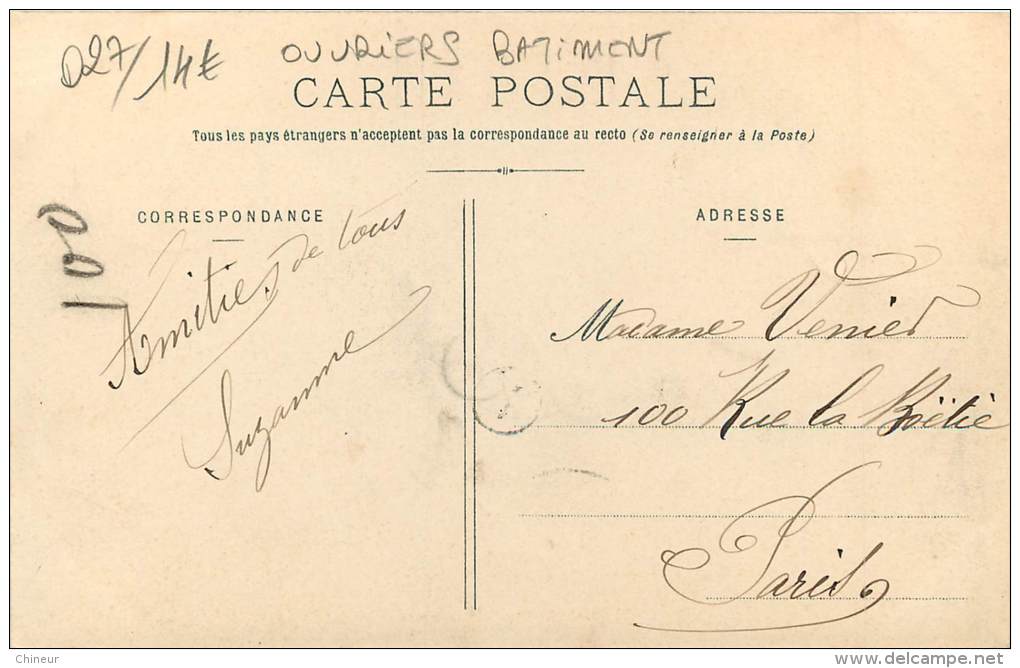 D27/14€
OUVRIERS BATIMENT
CARTE POSTALE
Tous les pays étrangers n'acceptent pas la correspondance au recto (Se renseigner à la Poste)
CORRESPONDANCE
100
Amitiés de tous
Suzanne
ADRESSE
Madame Venier
100 Rue la Boëtie
Paris
Chineur
www.delcampe.net